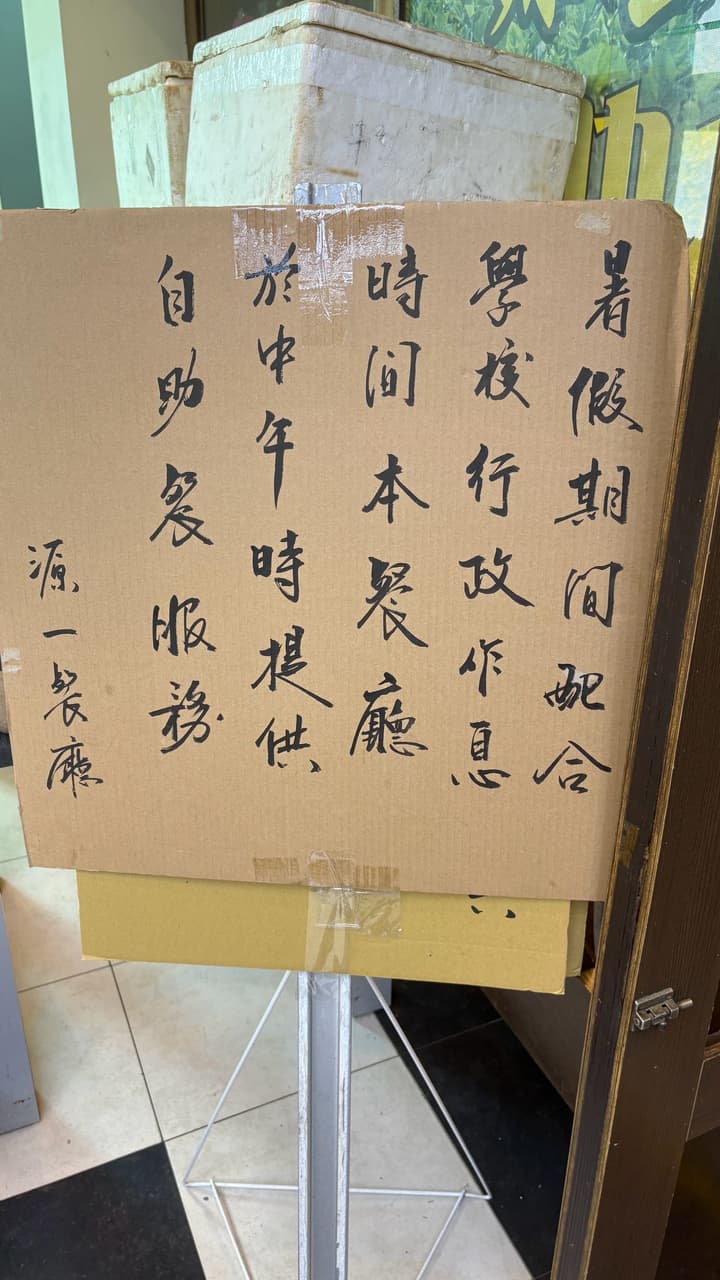 暑假期间配合
學校行政作息
時间本餐廳
於中午時提供
自助餐服務
源一餐廳